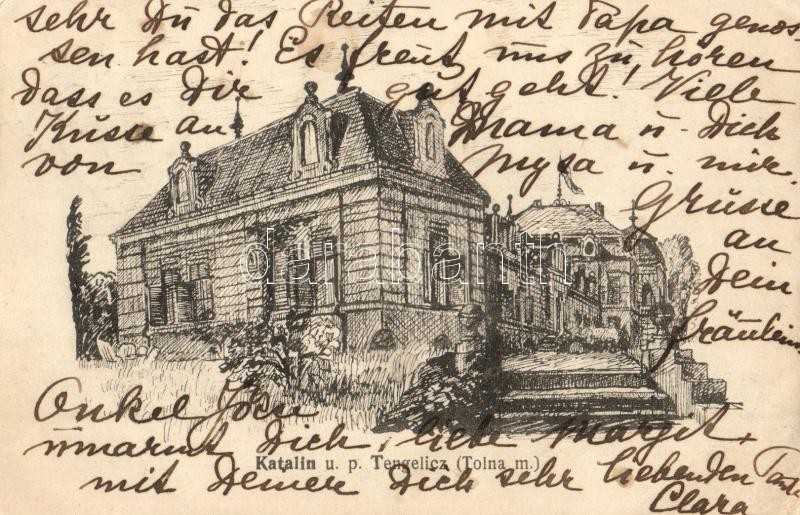 sehr Du das Reiten mit Papa genos-
sen hast! Es freut uns zu hören
dass es Dir gut geht! Viele
Küsse an Mama u. Dich
von u. mir.
Grüsse
an
Dein
Fräulein
darabanth
Onkel
umarmt Dich, liebe Margit,
Katalin u. p. Tengelicz (Tolna m.)
mit Deiner Dich sehr liebenden Tante
Clara